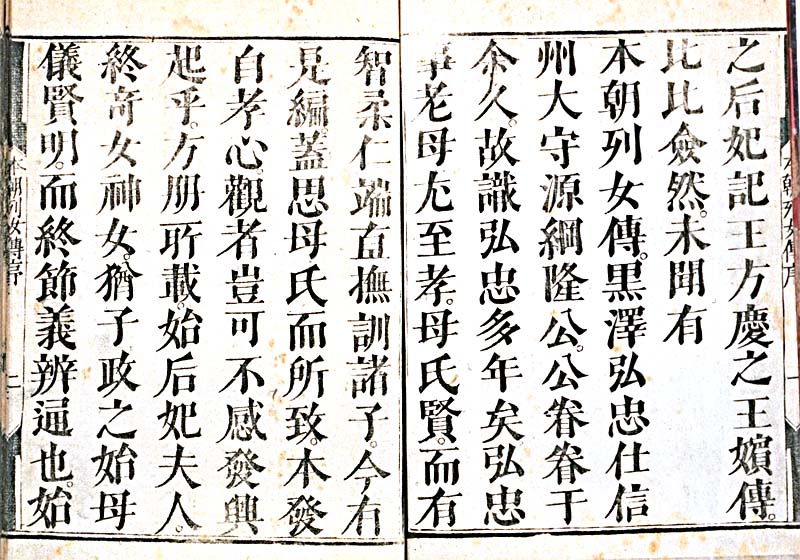 之后妃記王方慶之王嬪傳。
比比僉然。未聞有
本朝列女傳。黒澤弘忠仕信
州大守源綱隆公。公眷眷于
余久。故識弘忠多年矣。弘忠
事老母尤至孝。母氏賢。而有
智柔仁端直撫訓諸子。今有
見編。蓋思母氏而所致。本發
自孝心。觀者豈可不感發興
起乎。方册所載。始后妃夫人。
終奇女神女。猶子政之始母
儀賢明。而終節義辨通也。始
本朝列女傳序